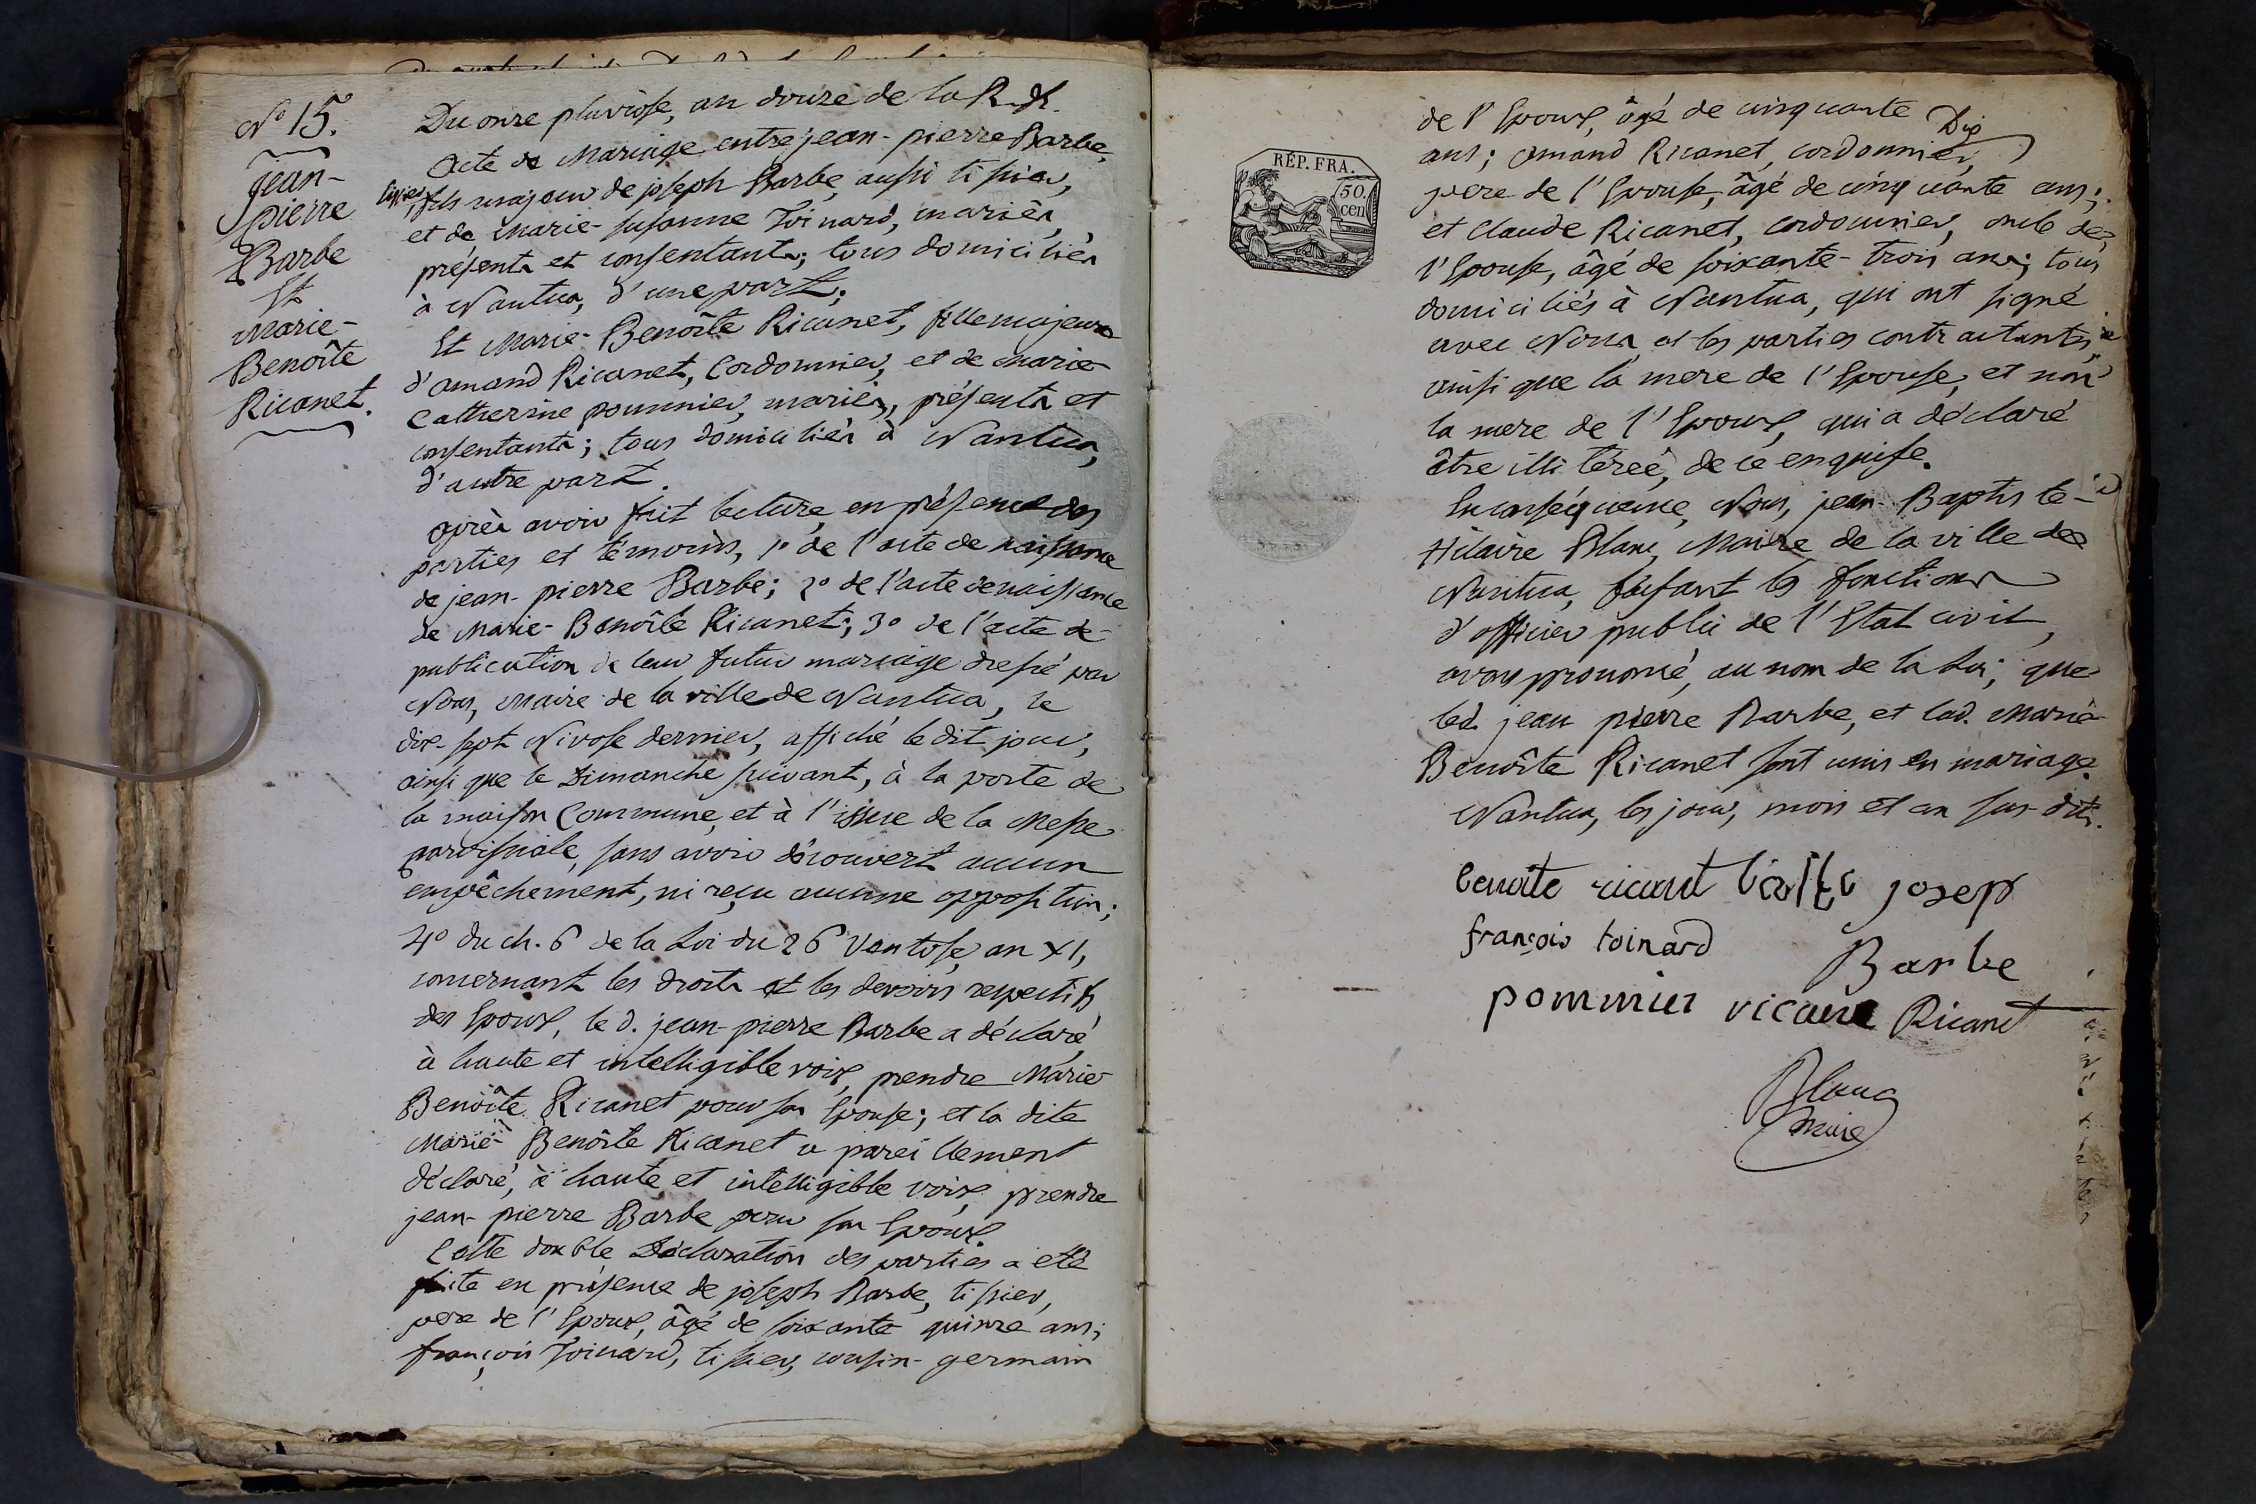 N° 15.
Jean-
pierre
Barbe
Et
Marie-
Benoîte
Ricanet.
Du onze pluviose, an douze de la R.
Acte de Mariage entre jean-pierre Barbe,
tissier, fils majeur de joseph Barbe, aussi tissier,
et de Marie-susanne Toinard, mariés,
présents et consentants; tous domiciliés
à Nantua, d'une part;
Et Marie-Benoîte Ricanet, fille majeure
d'amand Ricanet, Cordonnier, et de Marie
Catherine pommier, mariés, présents et
consentants; tous domiciliés à Nantua,
d'autre part.
après avoir fait lecture, en présence des
parties et témoins, 1° de l'acte de naissance
de jean-pierre Barbe; 2° de l'acte de naissance
de Marie-Benoîte Ricanet; 3° de l'acte de
publication de leur futur mariage dressé par
Nous, Maire de la ville de Nantua, le
dix-sept Nivose dernier, affiché le dit jour,
ainsi que le Dimanche suivant, à la porte de
la maison Commune, et à l'issue de la Messe
paroissiale, sans avoir découvert aucun
empêchement, ni reçu aucune opposition;
4° du ch. 6 de la Loi du 26 Ventose, an XI,
concernant les droits et les devoirs respectifs
des Epoux, le d. jean-pierre Barbe a déclaré
à haute et intelligible voix, prendre Marie
Benoîte Ricanet pour son Epouse; et la dite
Marie-Benoîte Ricanet a pareillement
déclaré, à haute et intelligible voix, prendre
jean-pierre Barbe pour son Epoux.
Cette double Déclaration des parties a été
faite en présence de joseph Barbe, tissier,
pere de l'Epoux, âgé de soixante quinze ans;
françois Toinard, tissier, cousin-germain
RÉP. FRA.
50
cen
de l'Epoux, âgé de cinquante
ans; amand Ricanet, cordonnier,
pere de l'Epouse, âgé de cinquante ans;
et Claude Ricanet, cordonnier, oncle de
l'Epouse, âgé de soixante-trois ans; tous
domiciliés à Nantua, qui ont signé
avec Nous et les parties contractantes,
ainsi que la mere de l'Epouse, et non
la mere de l'Epoux, qui a déclaré
être illitérée, de ce enquise.
En conséquence, Nous, jean-Baptiste-
Hilaire Blanc, Maire de la ville de
Nantua, faisant les fonctions
d'officier public de l'Etat civil,
avons prononcé, au nom de la Loi; que
led. jean pierre Barbe, et lad. Marie
Benoîte Ricanet sont unis en mariage.
Nantua, les jour, mois et an sus-dits.
benoite ricanet josep
françois toinard Barbe
pommier Ricanet
Blanc
Maire